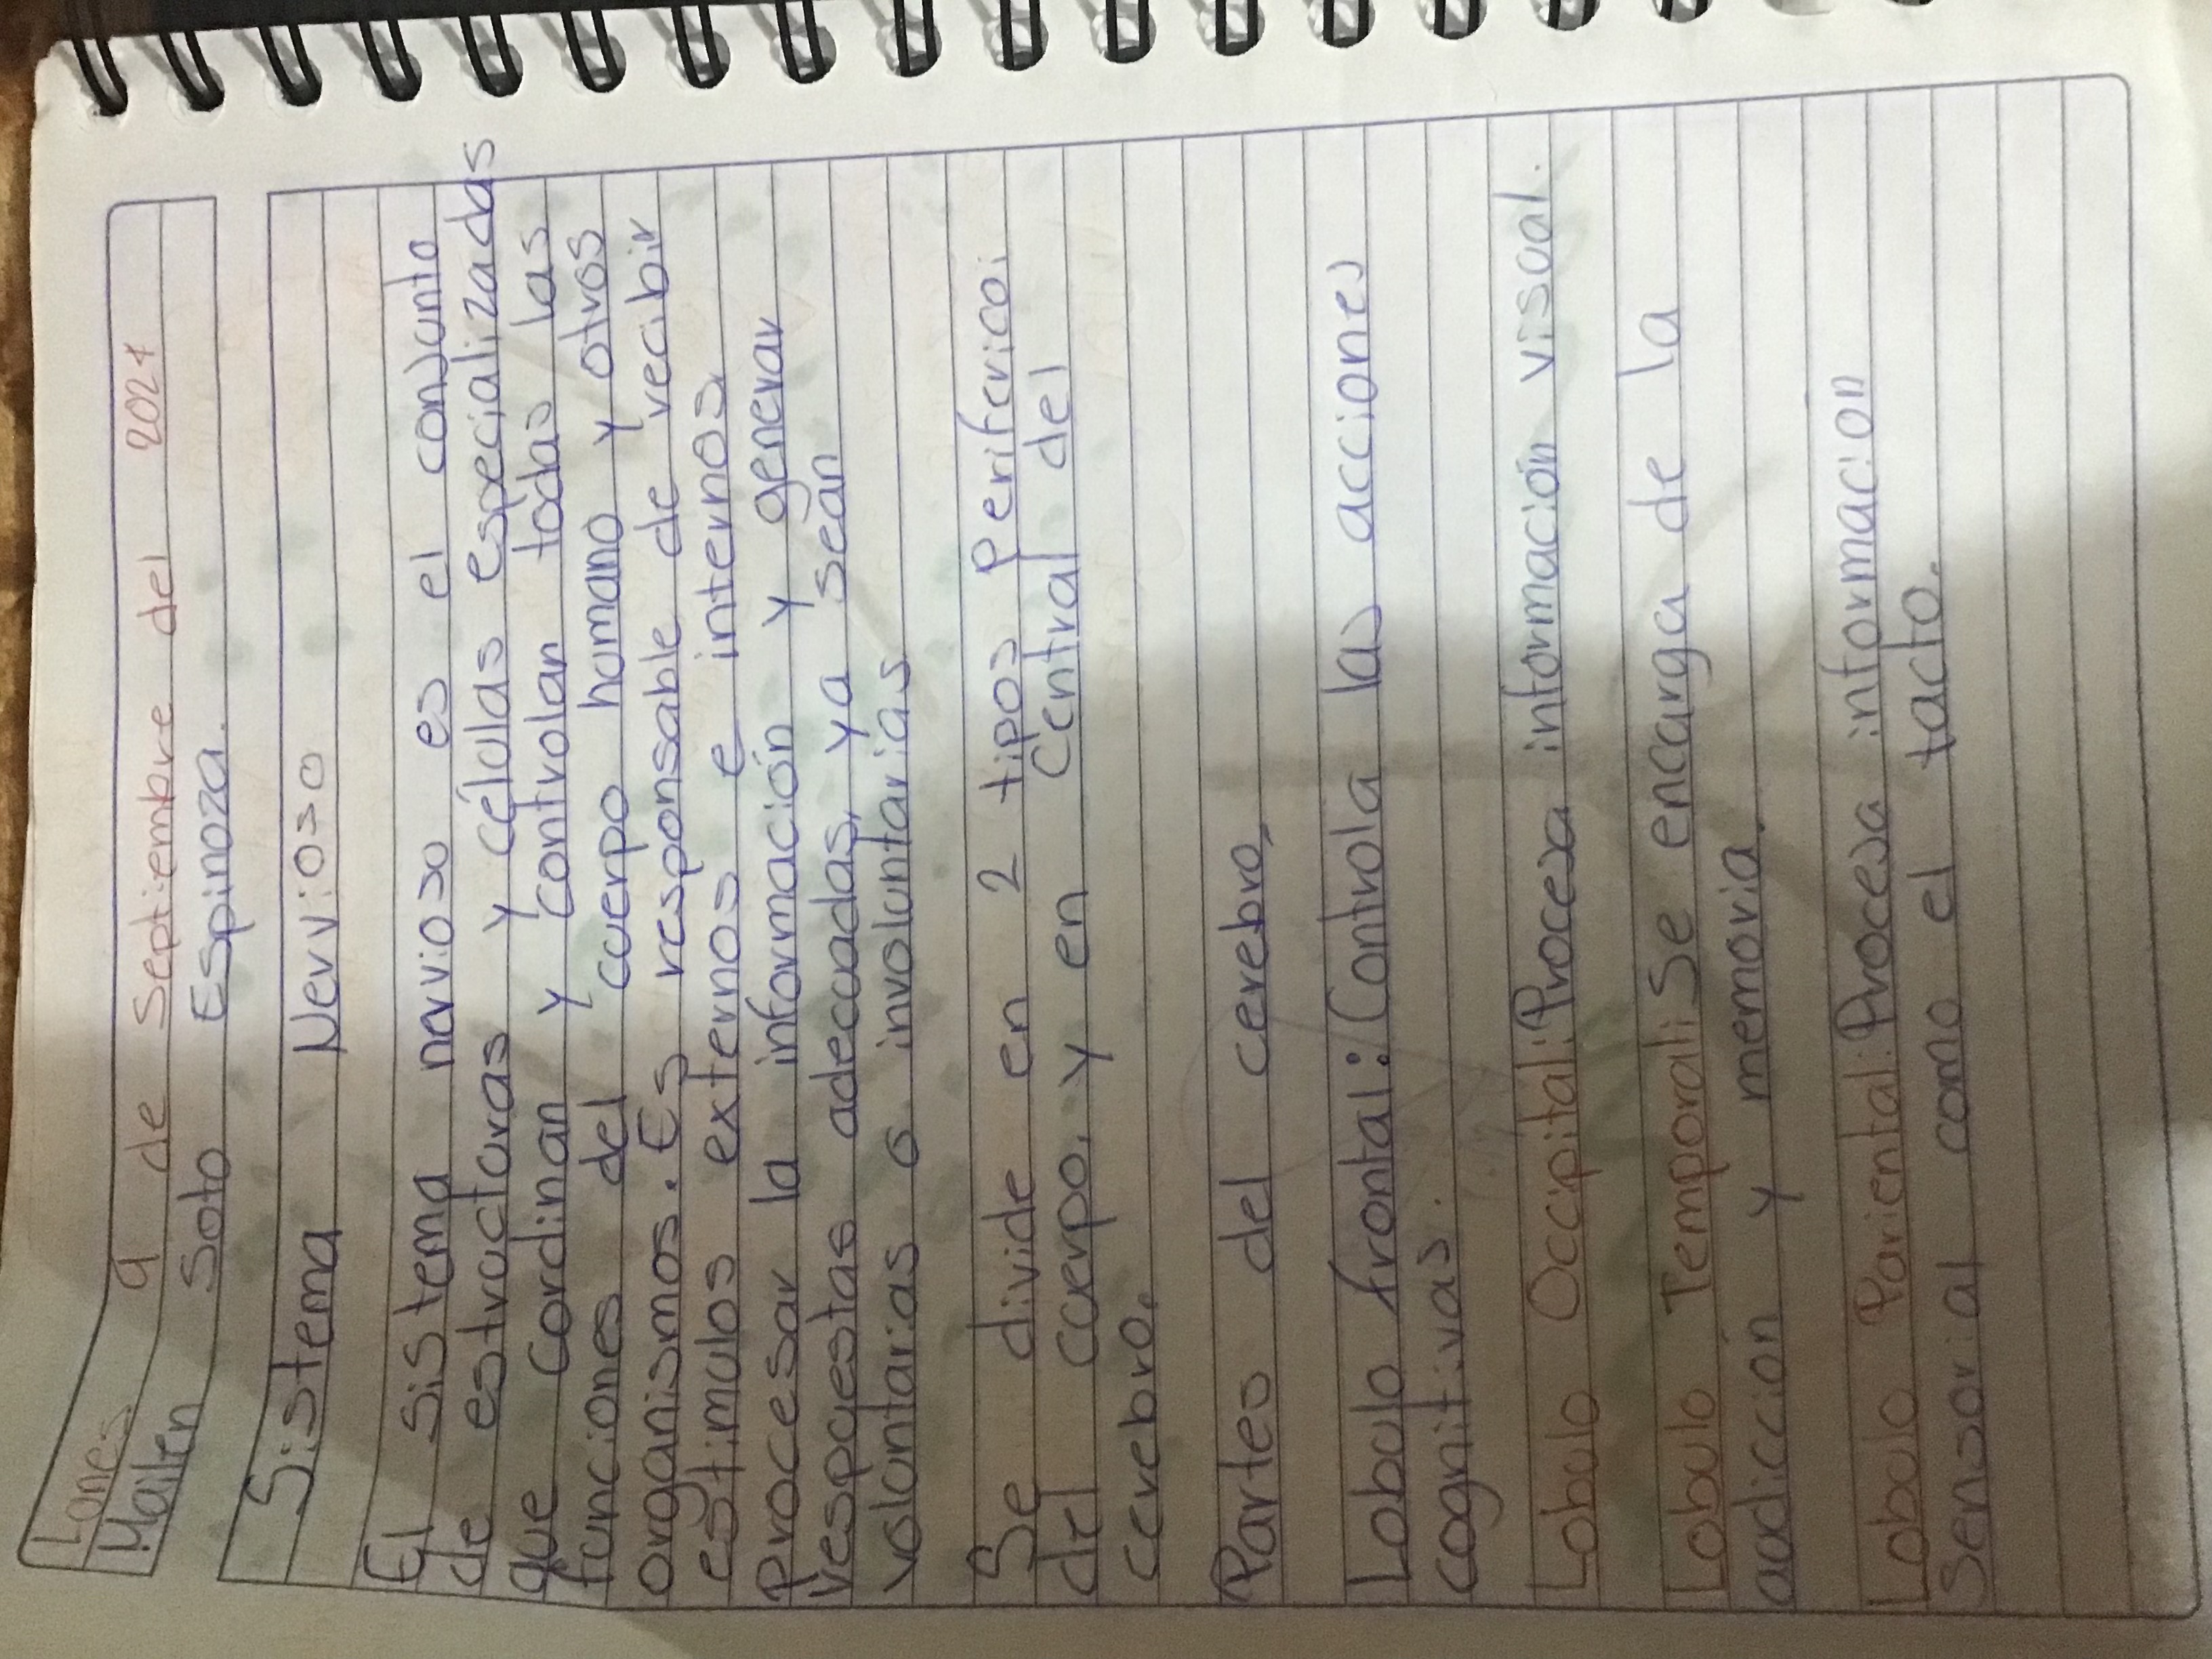 Lunes 9 de Septiembre del 2024
Mailen Soto Espinoza.
Sistema Nervioso
El sistema nervioso es el conjunto
de estructuras y células especializadas
que Cordinan y controlan todas las
funciones del cuerpo humano y otros
organismos. Es responsable de recibir
estimulos externos e internos,
Procesar la información y generar
respuestas adecuadas, ya sean
voluntarias o involuntarias
Se divide en 2 tipos Periferico:
del cuerpo, y en Central del
cerebro.
Partes del cerebro,
Lobulo frontal: Controla las acciones
cognitivas.
Lobulo Occipital: Procesa información visual.
Lobulo Temporal: Se encarga de la
audicción y memoria.
Lobulo Pariental: Procesa informacion
Sensorial como el tacto.